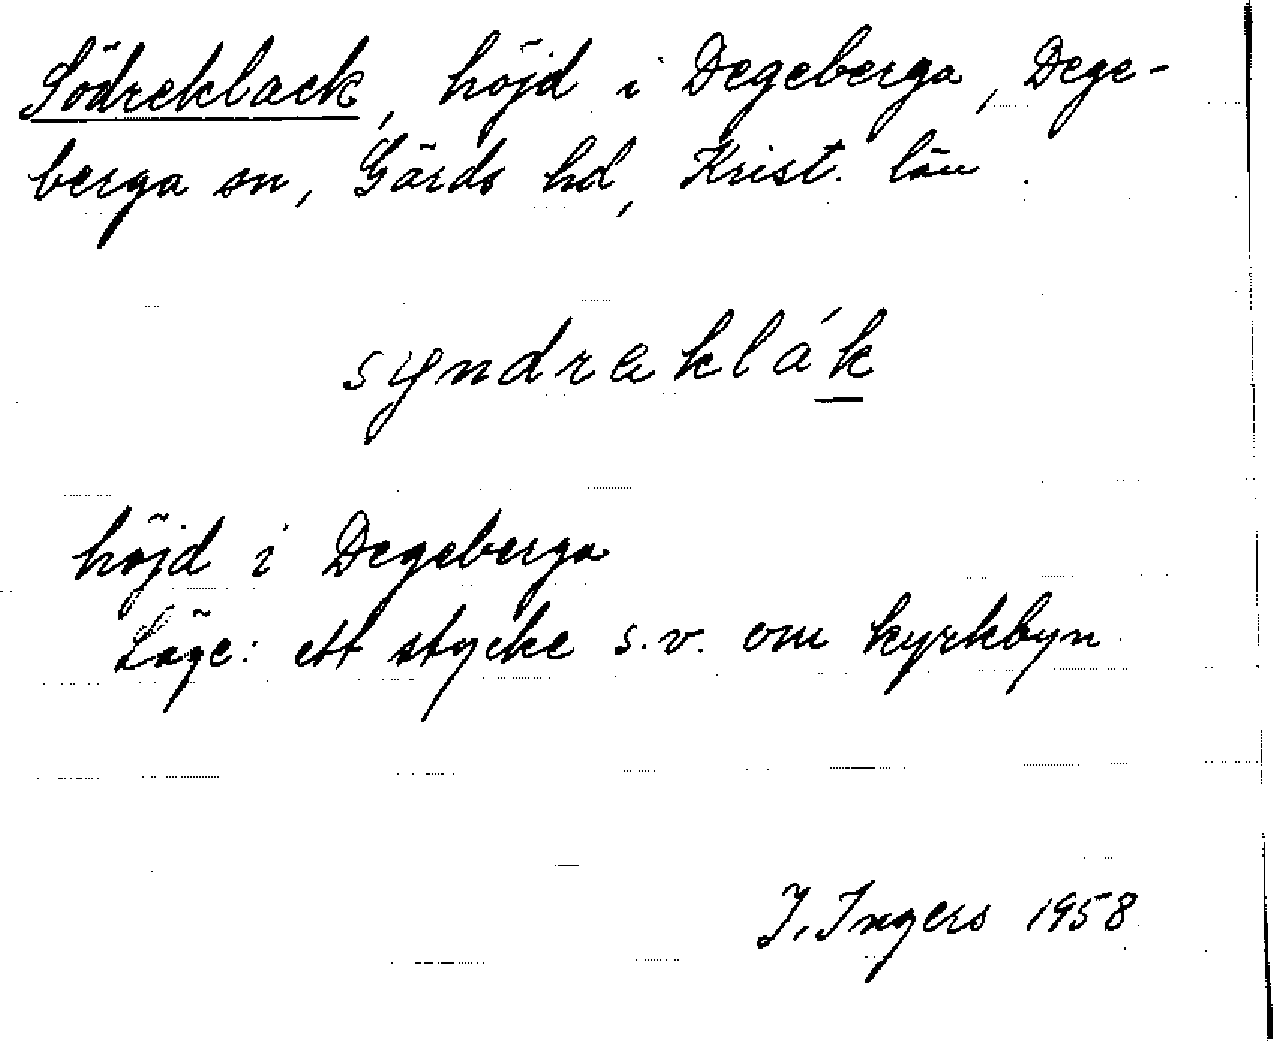 Södreklack, höjd i Degeberga, Dege-
berga sn, Gärds hd, Krist. län.
syndrəklák
höjd i Degeberga
Läge: ett stycke s.v. om kyrkbyn.
I. Ingers 1958